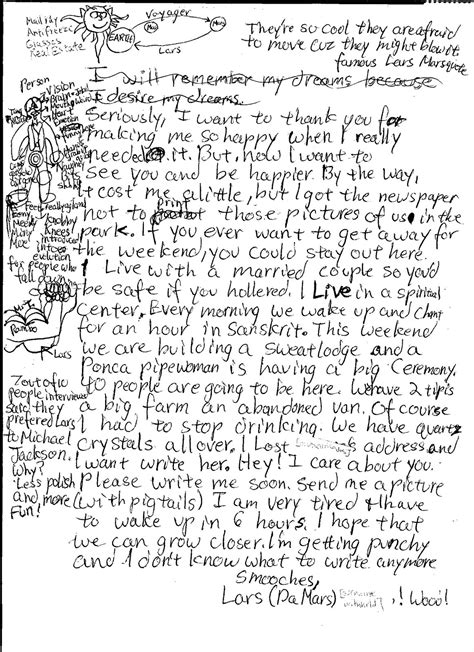 Mail idy
Antifreeze
Glasses
Real Estate
Voyager
EARTH
Lars
They're so cool they are afraid
to move cuz they might blow it
famous Lars Marsquote
I will remember my dreams because
I desire my dreams.
Seriously, I want to thank you for
making me so happy when I really
needed it. But, now I want to
see you and be happier. By the way,
it cost me a little, but I got the newspaper
not to print those pictures of us in the
park. If you ever want to get away for
the weekend, you could stay out here.
I Live with a married couple so you'd
be safe if you hollered. I Live in a spiritual
center. Every morning we wake up and chant
for an hour in Sanskrit. This weekend
we are building a sweatlodge and a
Ponca pipewoman is having a big Ceremony.
40 people are going to be here. We have 2 tipis
a big farm an abandoned van. Of course
I had to stop drinking. We have quartz
Crystals all over. I Lost address and
I want write her. Hey! I care about you.
Please write me soon. Send me a picture
(with pigtails) I am very tired & I have
to wake up in 6 hours. I hope that
we can grow closer. I'm getting punchy
and I don't know what to write anymore
Smooches,
Lars (Da Mars) ,! Wooo!
Person
Vision
Brain
Heart
Knobby
Knees
introduced
into
evolution
for people who
fall down
Lars
7 out of 10
people interviewed
said they
preferred Lars
to Michael
Jackson.
Why?
Less polish
and more
Fun!